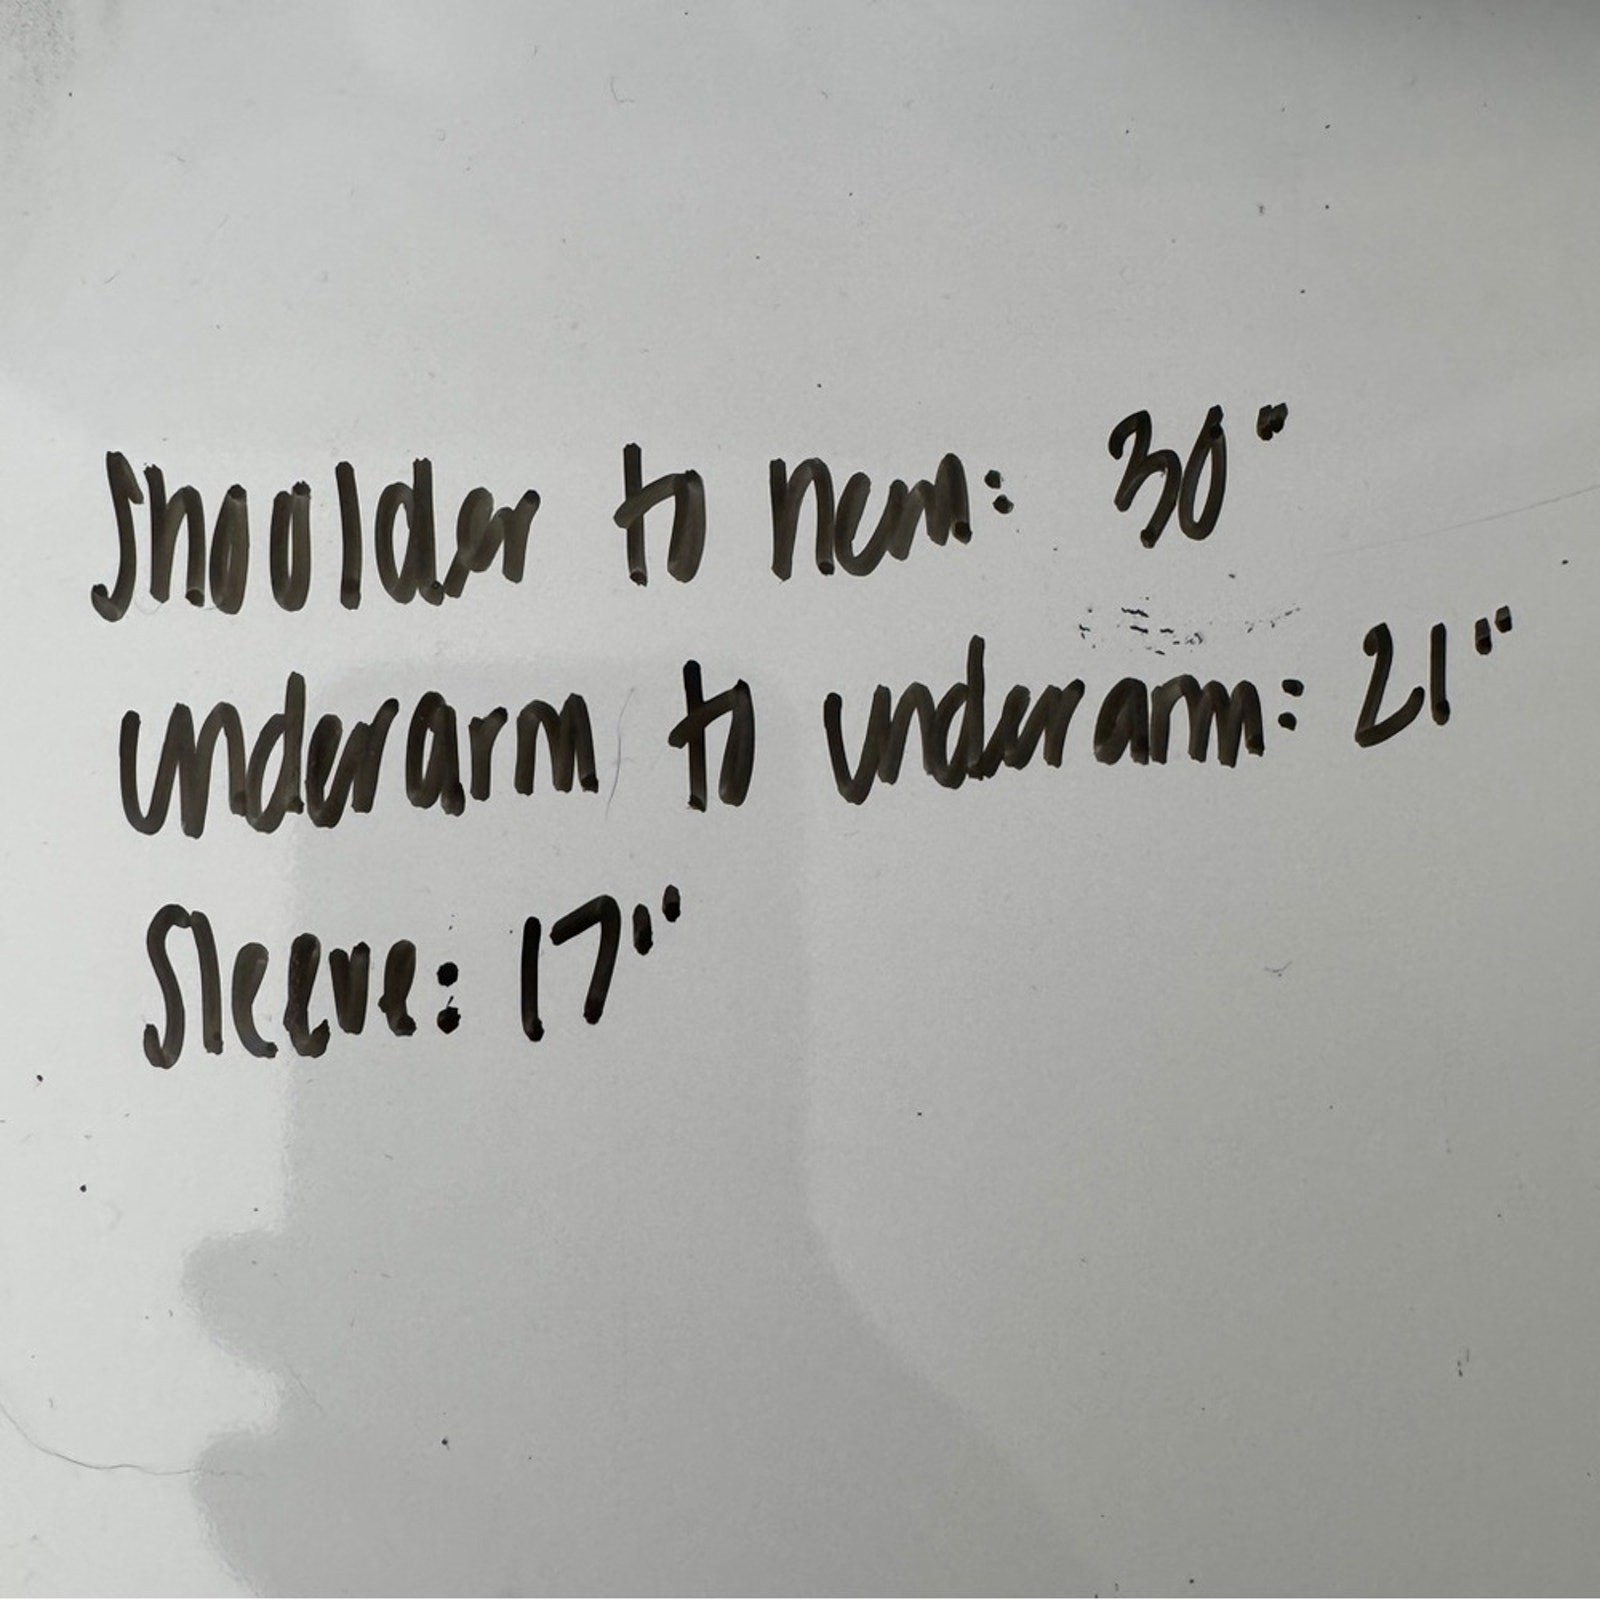 Shoulder to hem: 30"
underarm to underarm: 21"
Sleeve: 17"